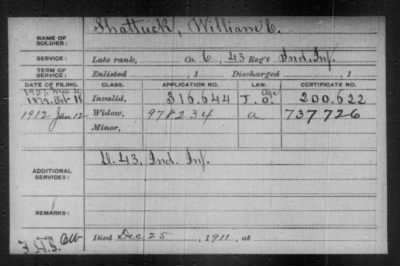 NAME OF SOLDIER: Shattuck, William C.
SERVICE: Late rank, Co. C, 43 Reg't Ind. Inf.
TERM OF SERVICE: Enlisted , 1 Discharged , 1
DATE OF FILING. CLASS. APPLICATION NO. LAW. CERTIFICATE NO.
Age
1879 Invalid, 316.644 200.622
1912 Jan. 12 Widow, 978234 a 737726
Minor,
ADDITIONAL SERVICES: 43, Ind. Inf.
REMARKS:
Died Dec 25 , 1911, at